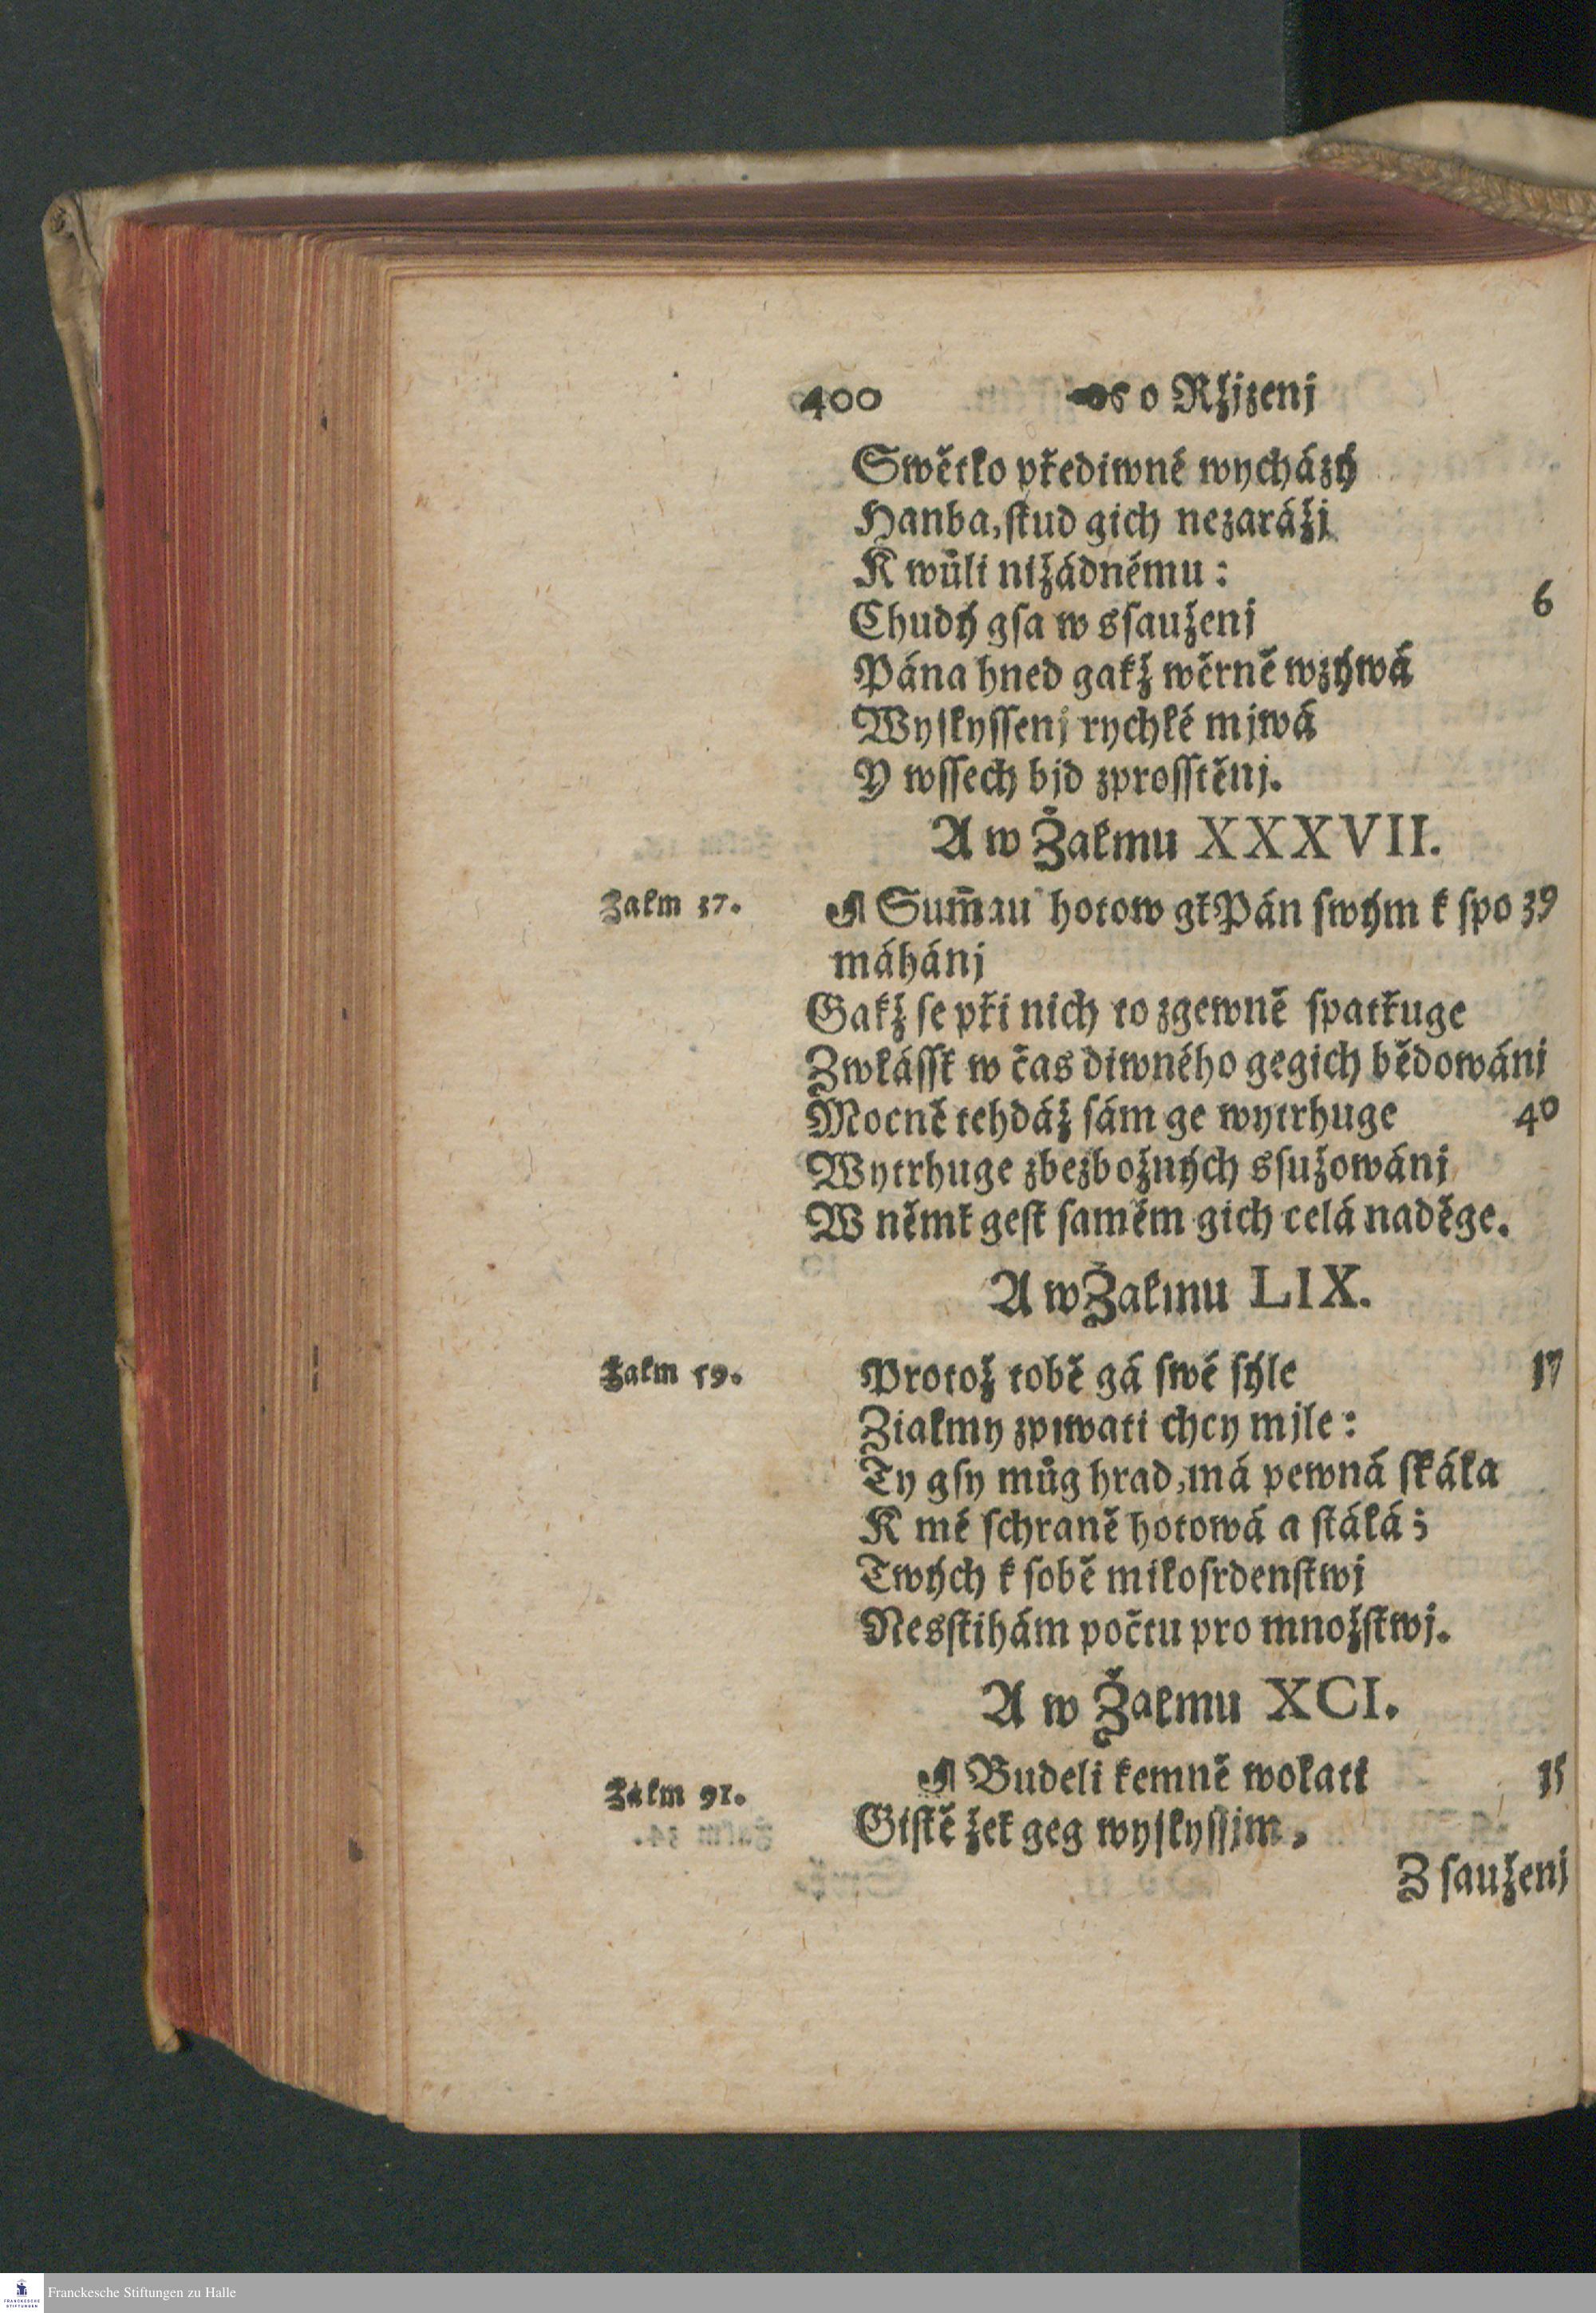 400 o Ržjzenj
Swětlo přediwné wycházý
Hanba, stud gich nezarážj
K wůli nižádnému:
Chudý gsa w ssauženj 6
Pána hned gakž wěrně wzýwá
Wyslyssenj rychlé mjwá
Y wssech bjd zprosstěnj.
A w Žalmu XXXVII.
Žalm 37. ¶ Sum̄au hotow gt Pán swým k spo 39
máhánj
Gakž se při nich to zgewně spatřuge
Zwlásst w čas diwného gegich bědowánj
Mocně tehdáž sám ge wytrhuge 40
Wytrhuge z bezbožných ssužowánj
W němt gest samém gich celá naděge.
A w Žalmu LIX.
Žalm 59. Protož tobě gá swé sýle 17
Žialmy zpiwati chcy mjle:
Ty gsy můg hrad, má pewná skála
K mé schraně hotowá a stálá;
Twých k sobě milosrdenstwj
Nesstihám počtu pro množstwj.
A w Žalmu XCI.
Žalm 91. ¶ Budeli ke mně wolati 15
Gistě žet geg wyslyssjm,
Z sauženj
Franckesche Stiftungen zu Halle